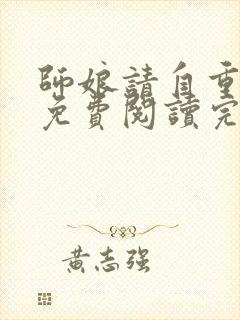 師娘請自重
免費閱讀完
黃志强